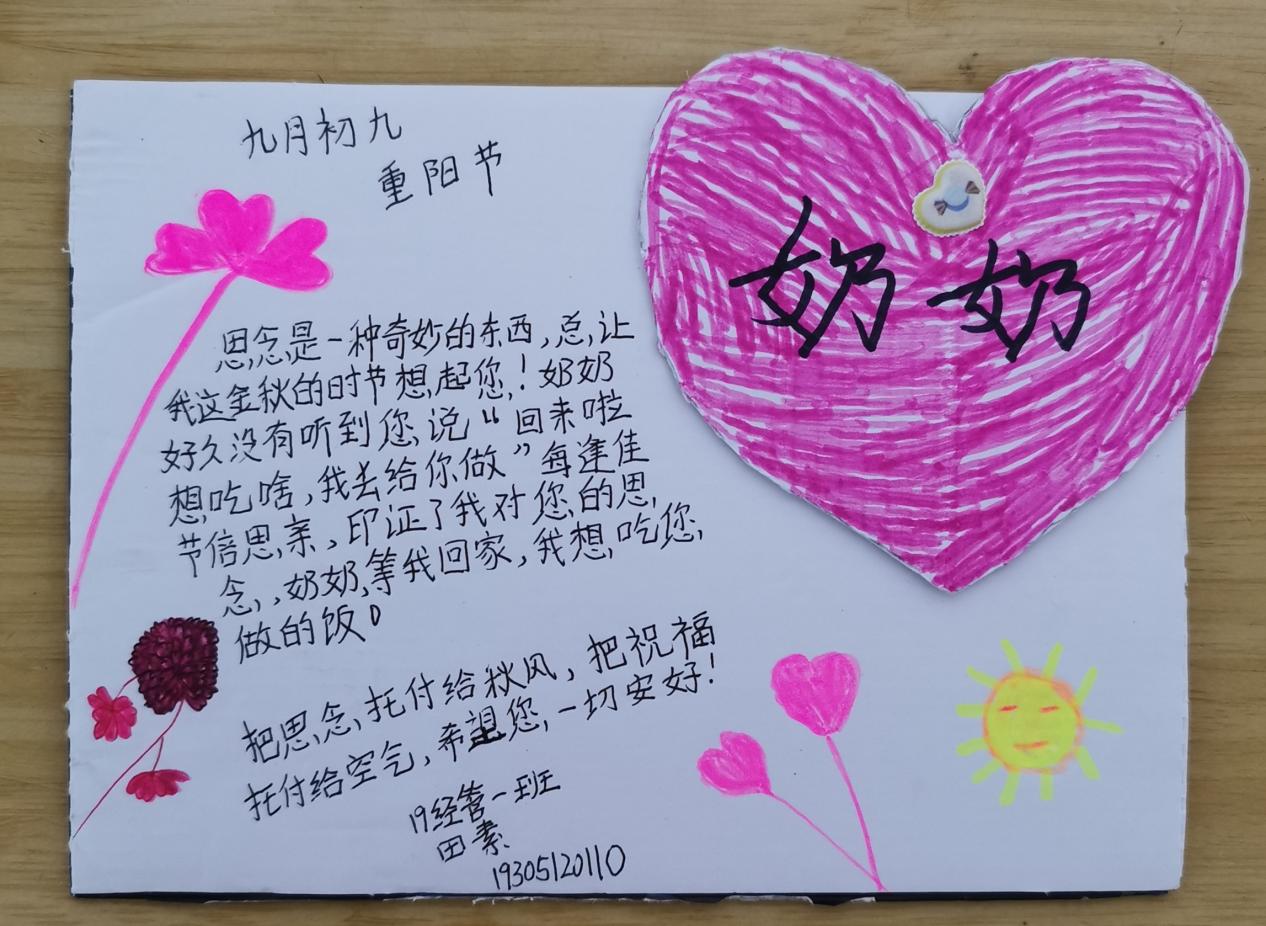 九月初九
重阳节
奶奶
思念是一种奇妙的东西，总让
我这金秋的时节想起您！奶奶
好久没有听到您说“回来啦
想吃啥，我去给你做”每逢佳
节倍思亲，印证了我对您的思
念，奶奶等我回家，我想吃您
做的饭。
把思念托付给秋风，把祝福
托付给空气，希望您一切安好！
19经管一班
田素
19305120110